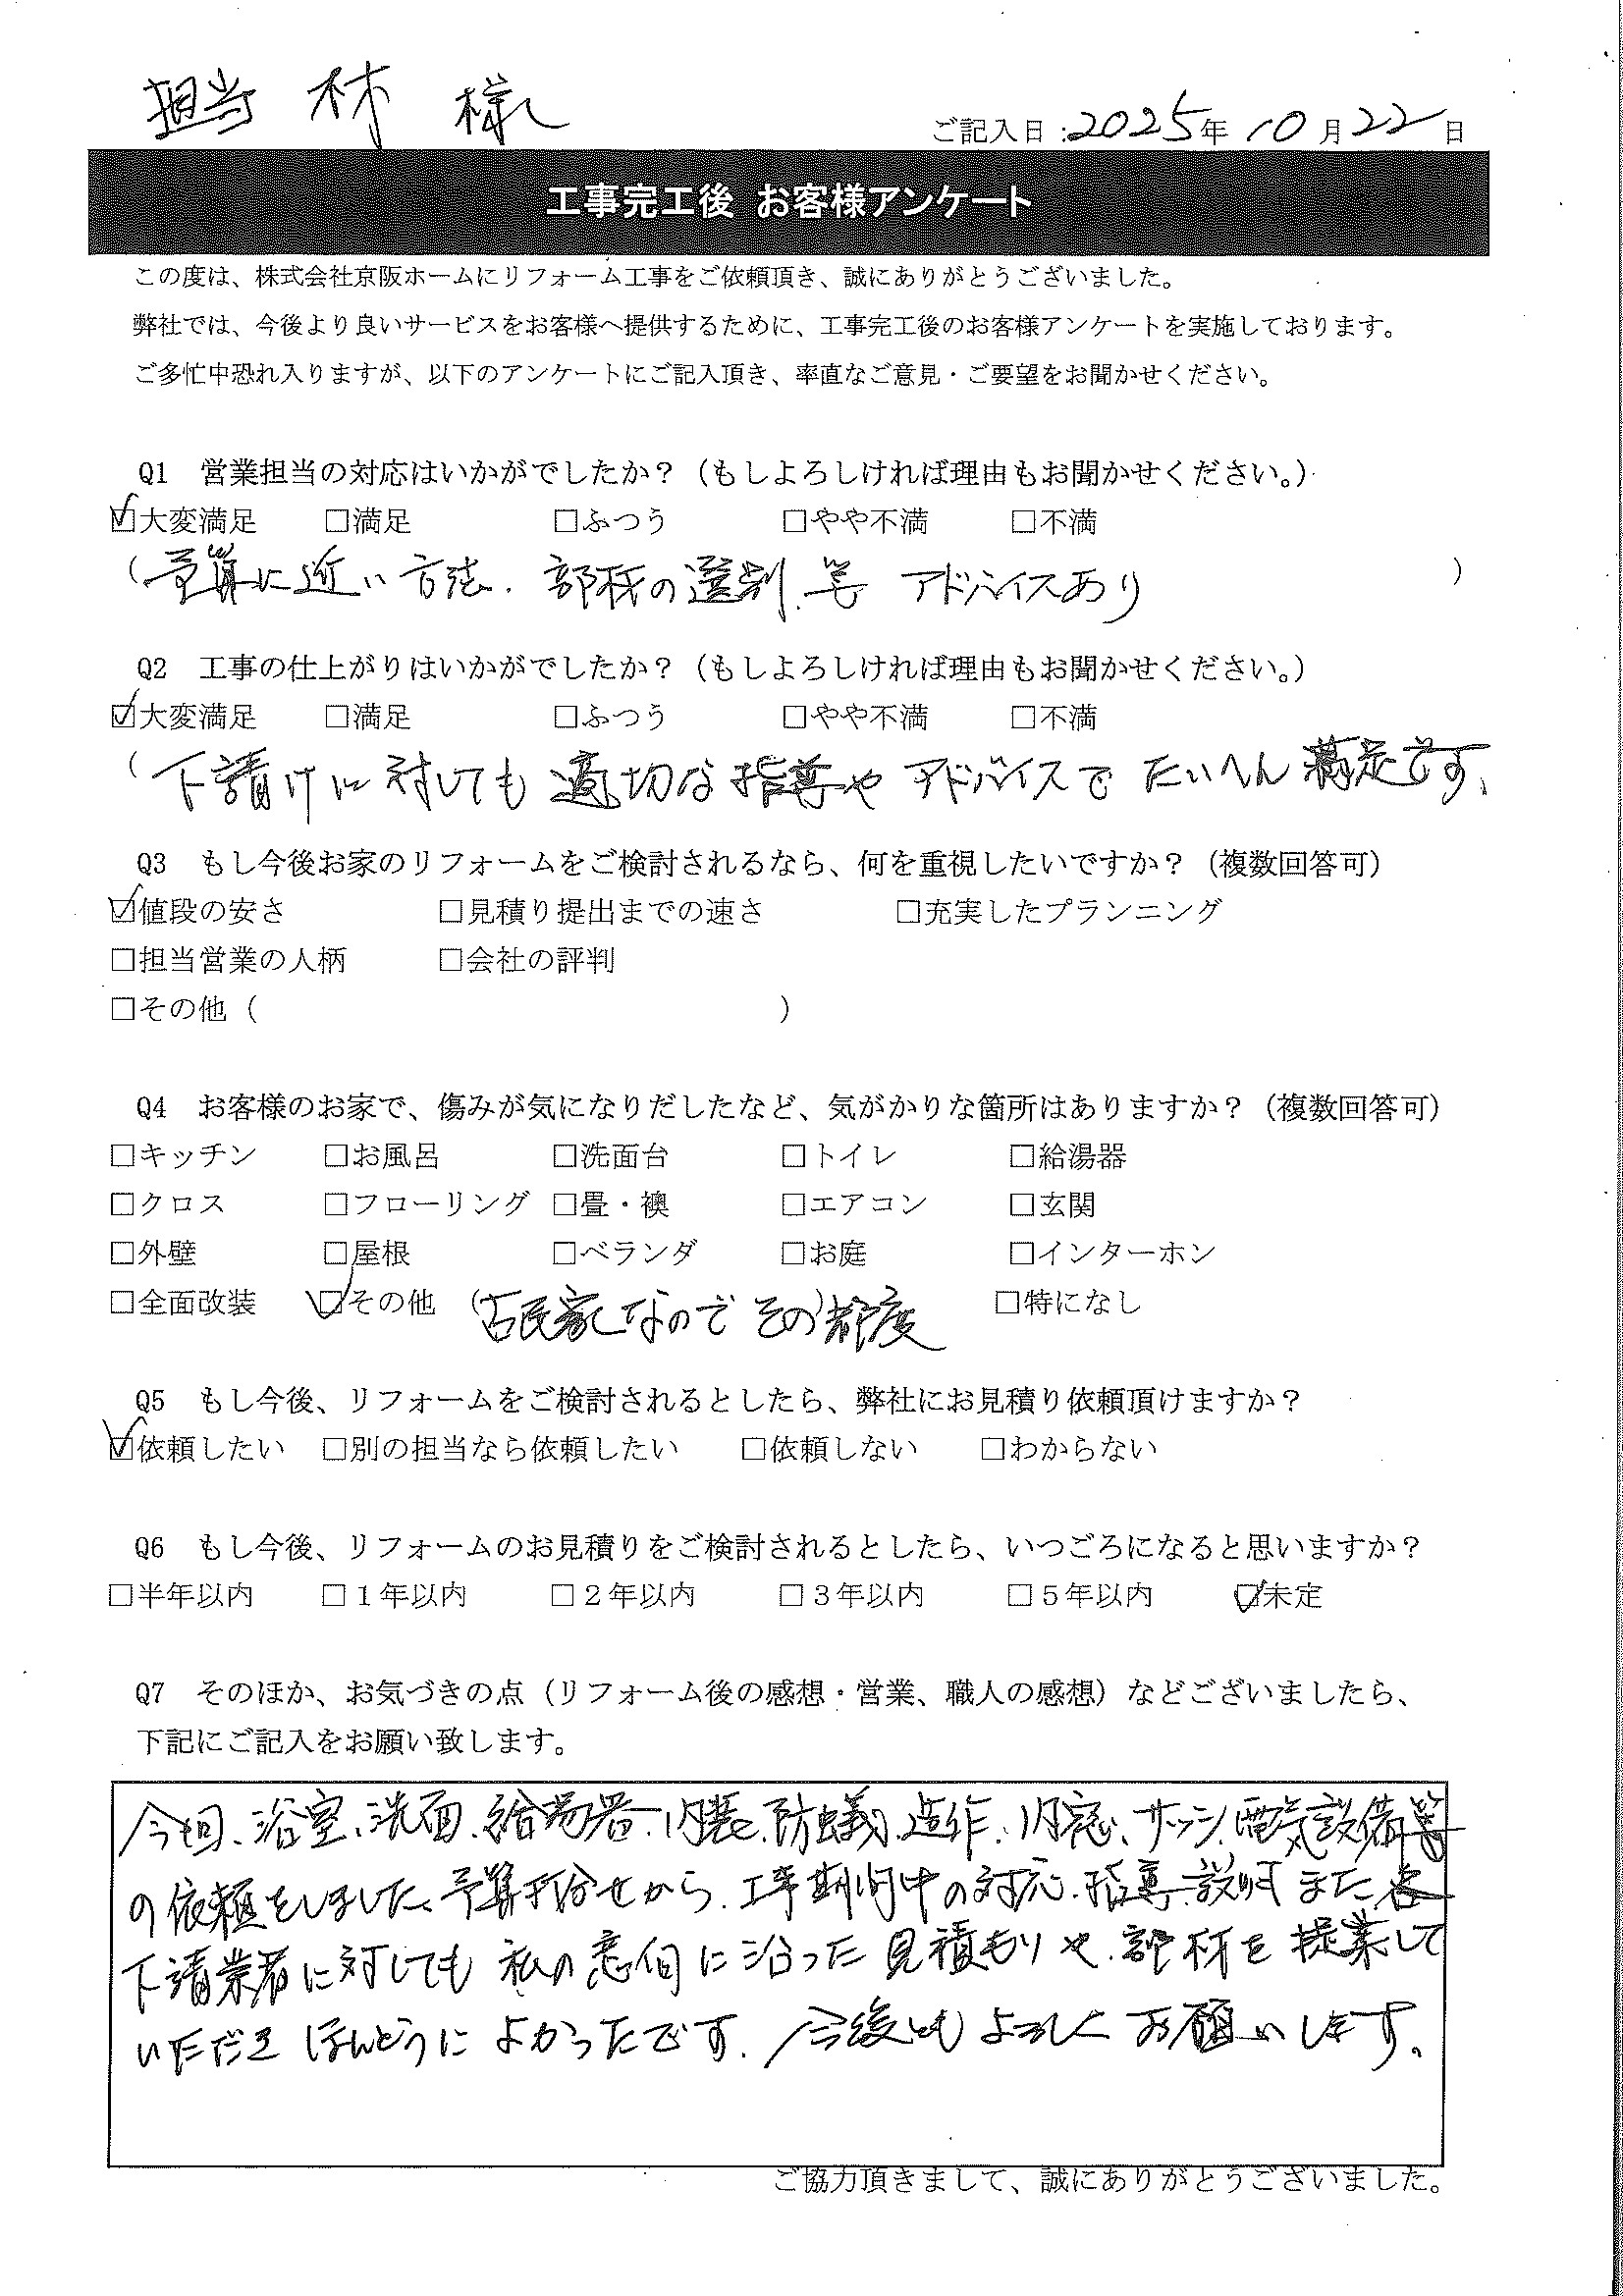 担当 林 様
ご記入日：2025年 10月22日
工事完工後 お客様アンケート
この度は、株式会社京阪ホームにリフォーム工事をご依頼頂き、誠にありがとうございました。
弊社では、今後より良いサービスをお客様へ提供するために、工事完工後のお客様アンケートを実施しております。
ご多忙中恐れ入りますが、以下のアンケートにご記入頂き、率直なご意見・ご要望をお聞かせください。
Q1 営業担当の対応はいかがでしたか？（もしよろしければ理由もお聞かせください。）
☑大変満足 □満足 □ふつう □やや不満 □不満
（予算に近い方法、部材の選別、等 アドバイスあり ）
Q2 工事の仕上がりはいかがでしたか？（もしよろしければ理由もお聞かせください。）
☑大変満足 □満足 □ふつう □やや不満 □不満
（下請けに対しても適切な指導やアドバイスでたいへん満足です、
Q3 もし今後お家のリフォームをご検討されるなら、何を重視したいですか？（複数回答可）
☑値段の安さ □見積り提出までの速さ □充実したプランニング
□担当営業の人柄 □会社の評判
□その他（ ）
Q4 お客様のお家で、傷みが気になりだしたなど、気がかりな箇所はありますか？（複数回答可）
□キッチン □お風呂 □洗面台 □トイレ □給湯器
□クロス □フローリング □畳・襖 □エアコン □玄関
□外壁 □屋根 □ベランダ □お庭 □インターホン
□全面改装 ☑その他 （古民家なのでその）都度 □特になし
Q5 もし今後、リフォームをご検討されるとしたら、弊社にお見積り依頼頂けますか？
☑依頼したい □別の担当なら依頼したい □依頼しない □わからない
Q6 もし今後、リフォームのお見積りをご検討されるとしたら、いつごろになると思いますか？
□半年以内 □１年以内 □２年以内 □３年以内 □５年以内 ☑未定
Q7 そのほか、お気づきの点（リフォーム後の感想・営業、職人の感想）などございましたら、
下記にご記入をお願い致します。
今回、浴室、洗面、給湯器、内装、防蟻、造作、内窓、サッシ、電気設備等
の依頼をしました、予算打合せから、工事期間中の対応、指導、説明また各
下請業者に対しても私の意向に沿った見積もりや、部材を提案して
いただきほんとうによかったです、今後ともよろしくお願いします。
ご協力頂きまして、誠にありがとうございました。